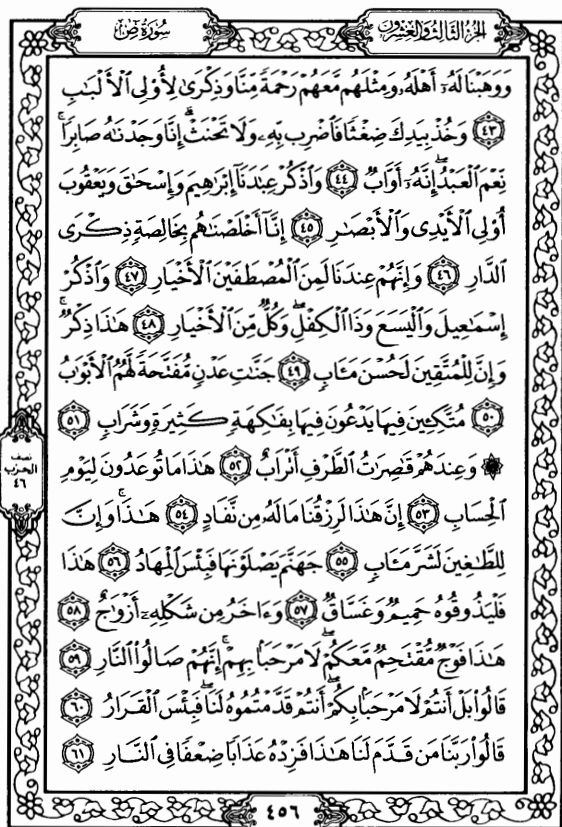 الجزء الثالث والعشرون
سُورَةُ صٓ
وَوَهَبْنَا لَهُۥٓ أَهْلَهُۥ وَمِثْلَهُم مَّعَهُمْ رَحْمَةً مِّنَّا وَذِكْرَىٰ لِأُو۟لِى ٱلْأَلْبَٰبِ
﴿٤٣﴾ وَخُذْ بِيَدِكَ ضِغْثًا فَٱضْرِب بِّهِۦ وَلَا تَحْنَثْ ۗ إِنَّا وَجَدْنَٰهُ صَابِرًا ۚ
نِّعْمَ ٱلْعَبْدُ ۖ إِنَّهُۥٓ أَوَّابٌ ﴿٤٤﴾ وَٱذْكُرْ عِبَٰدَنَآ إِبْرَٰهِيمَ وَإِسْحَٰقَ وَيَعْقُوبَ
أُو۟لِى ٱلْأَيْدِى وَٱلْأَبْصَٰرِ ﴿٤٥﴾ إِنَّآ أَخْلَصْنَٰهُم بِخَالِصَةٍ ذِكْرَى
ٱلدَّارِ ﴿٤٦﴾ وَإِنَّهُمْ عِندَنَا لَمِنَ ٱلْمُصْطَفَيْنَ ٱلْأَخْيَارِ ﴿٤٧﴾ وَٱذْكُرْ
إِسْمَٰعِيلَ وَٱلْيَسَعَ وَذَا ٱلْكِفْلِ ۖ وَكُلٌّ مِّنَ ٱلْأَخْيَارِ ﴿٤٨﴾ هَٰذَا ذِكْرٌ ۚ
وَإِنَّ لِلْمُتَّقِينَ لَحُسْنَ مَـَٔابٍ ﴿٤٩﴾ جَنَّٰتِ عَدْنٍ مُّفَتَّحَةً لَّهُمُ ٱلْأَبْوَٰبُ
﴿٥٠﴾ مُتَّكِـِٔينَ فِيهَا يَدْعُونَ فِيهَا بِفَٰكِهَةٍ كَثِيرَةٍ وَشَرَابٍ ﴿٥١﴾
۞ وَعِندَهُمْ قَٰصِرَٰتُ ٱلطَّرْفِ أَتْرَابٌ ﴿٥٢﴾ هَٰذَا مَا تُوعَدُونَ لِيَوْمِ
ٱلْحِسَابِ ﴿٥٣﴾ إِنَّ هَٰذَا لَرِزْقُنَا مَا لَهُۥ مِن نَّفَادٍ ﴿٥٤﴾ هَٰذَا ۚ وَإِنَّ
لِلطَّٰغِينَ لَشَرَّ مَـَٔابٍ ﴿٥٥﴾ جَهَنَّمَ يَصْلَوْنَهَا فَبِئْسَ ٱلْمِهَادُ ﴿٥٦﴾ هَٰذَا
فَلْيَذُوقُوهُ حَمِيمٌ وَغَسَّاقٌ ﴿٥٧﴾ وَءَاخَرُ مِن شَكْلِهِۦٓ أَزْوَٰجٌ ﴿٥٨﴾
هَٰذَا فَوْجٌ مُّقْتَحِمٌ مَّعَكُمْ ۖ لَا مَرْحَبًۢا بِهِمْ ۚ إِنَّهُمْ صَالُوا۟ ٱلنَّارِ ﴿٥٩﴾
قَالُوا۟ بَلْ أَنتُمْ لَا مَرْحَبًۢا بِكُمْ ۖ أَنتُمْ قَدَّمْتُمُوهُ لَنَا ۖ فَبِئْسَ ٱلْقَرَارُ ﴿٦٠﴾
قَالُوا۟ رَبَّنَا مَن قَدَّمَ لَنَا هَٰذَا فَزِدْهُ عَذَابًا ضِعْفًا فِى ٱلنَّارِ ﴿٦١﴾
نصف
الحزب
٤٦
٤٥٦